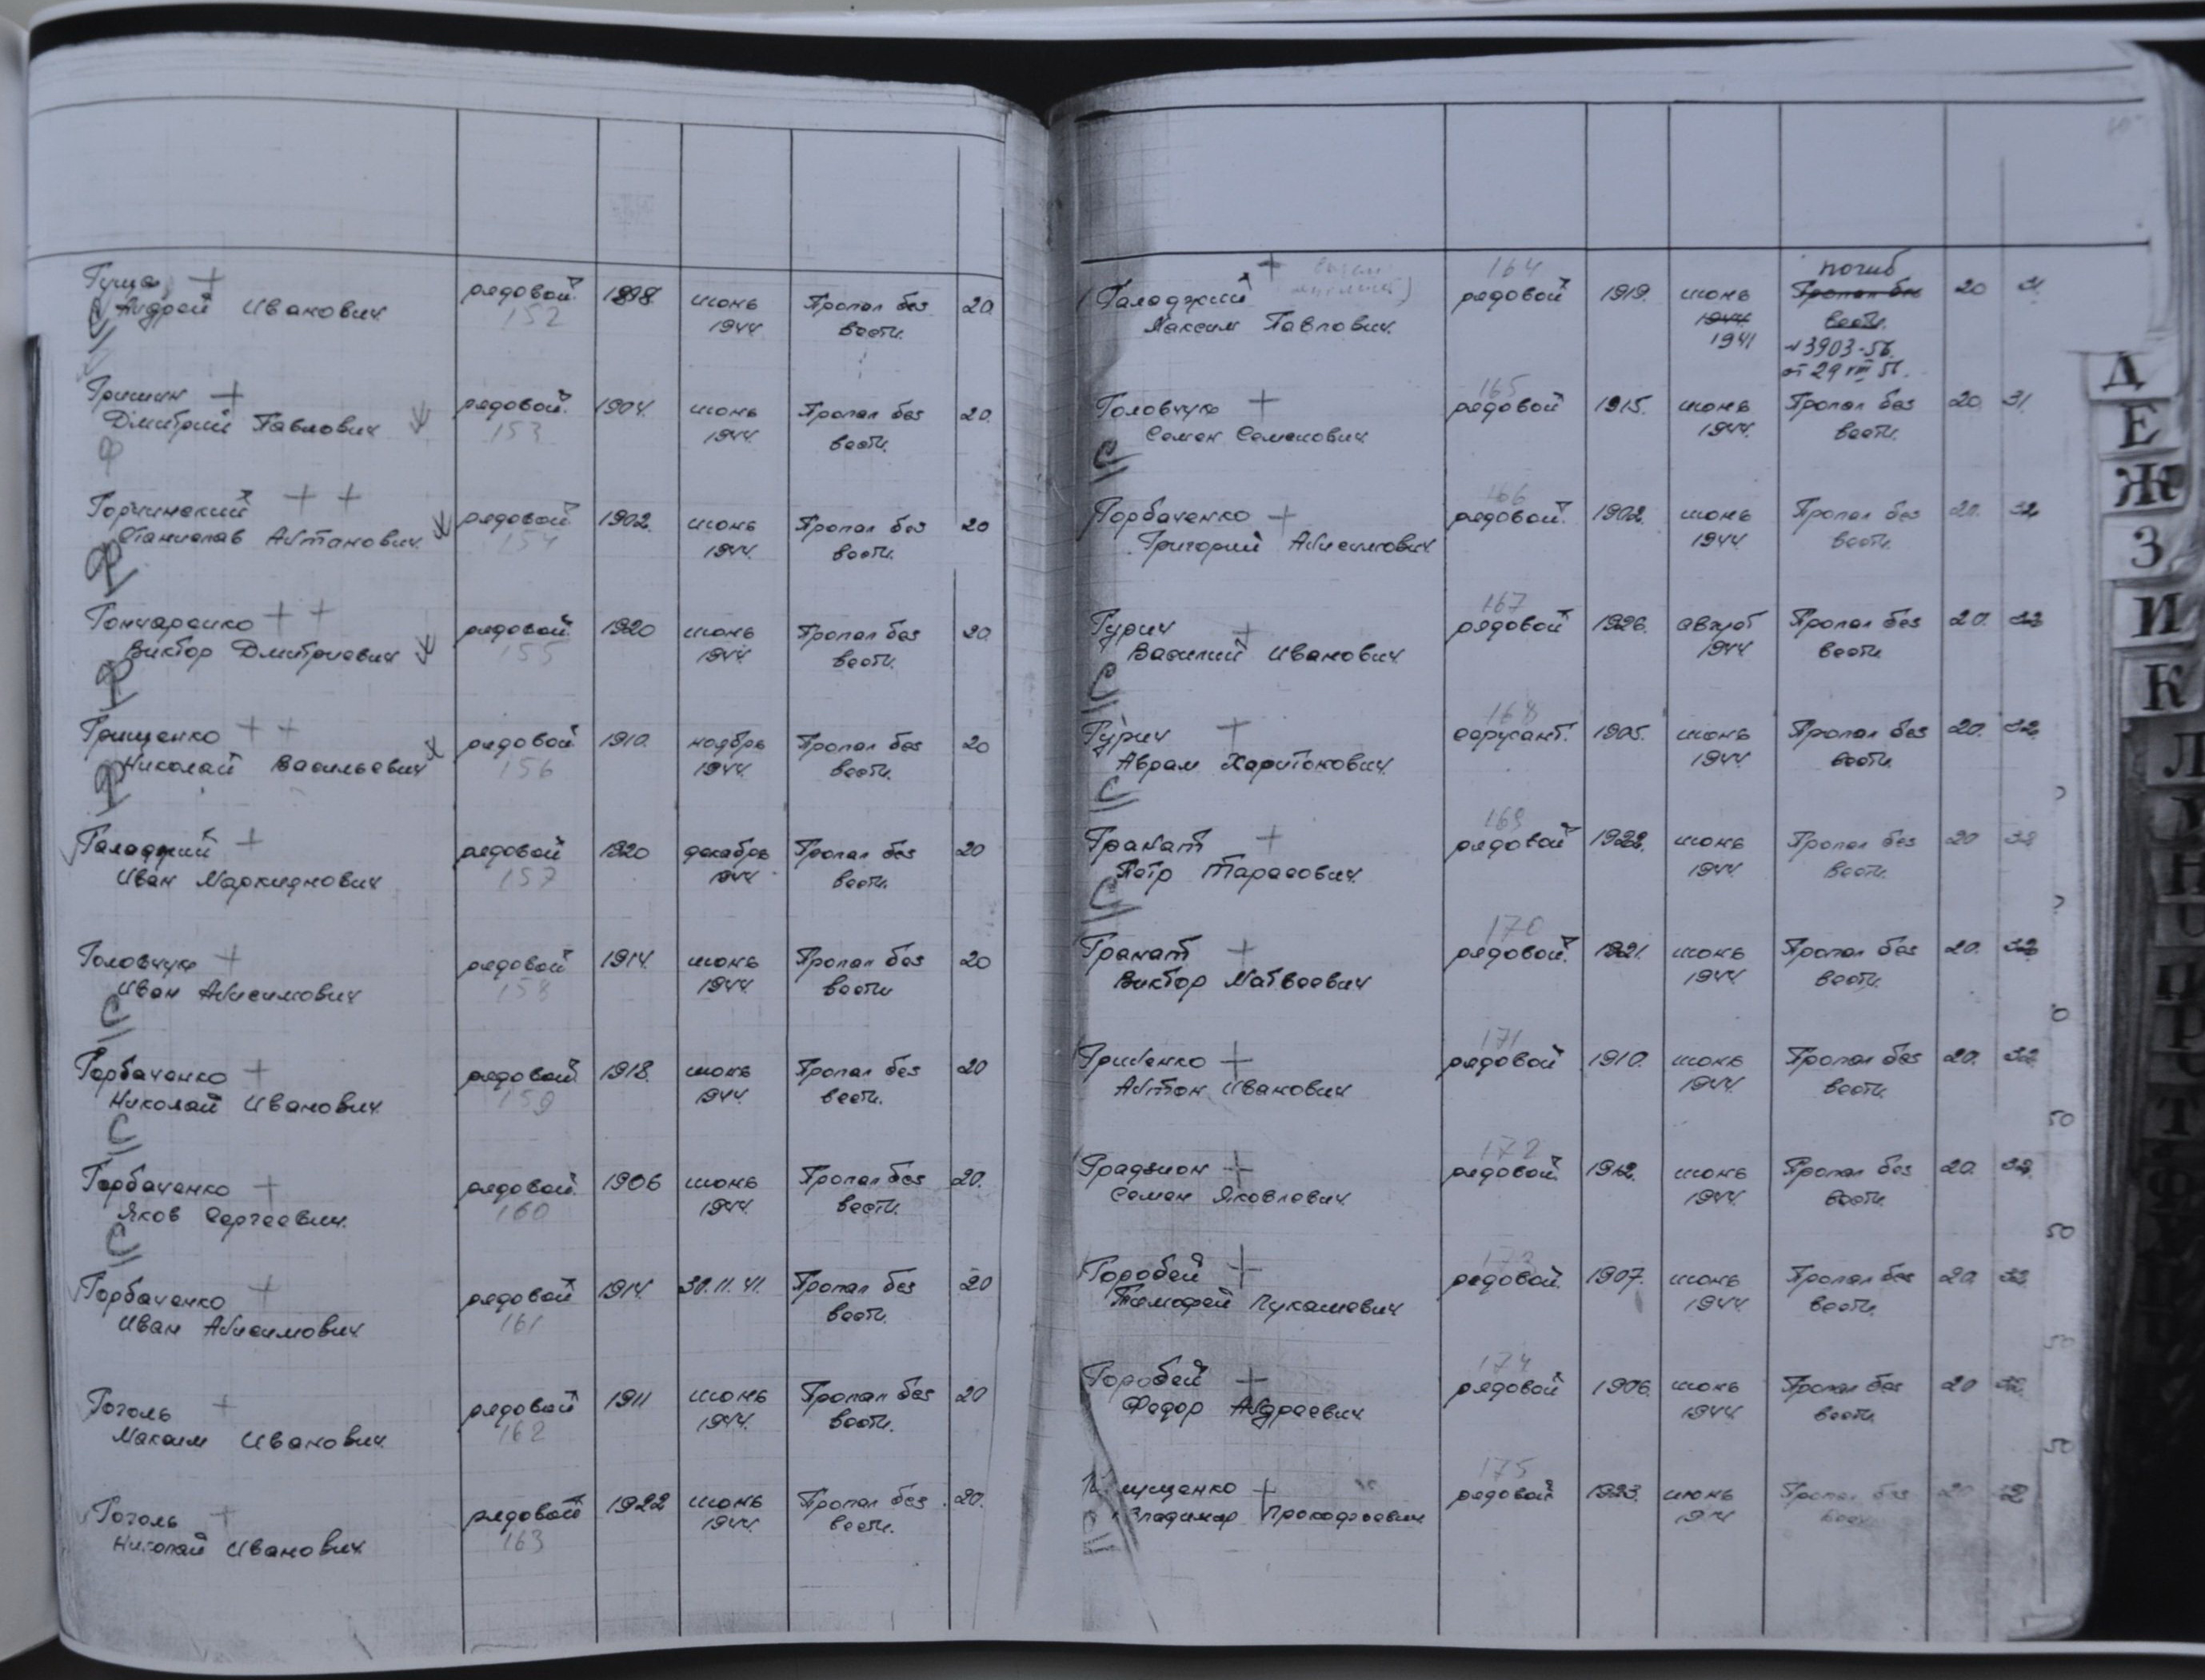 Гуща +
Андрей Иванович рядовой 152 1898 июнь 1944 Пропал без вести. 20
Гришин +
Дмитрий Павлович рядовой. 153 1904. июнь 1944 Пропал без вести. 20.
Горчинский + +
Станислав Антонович рядовой 154 1902. июнь 1944 Пропал без вести. 20
Ф
Гончаренко + +
Виктор Дмитриевич рядовой. 155 1920 июнь 1944 Пропал без вести. 20.
Ф
Грищенко + +
Николай Васильевич рядовой 156 1910. ноябрь 1944. Пропал без вести. 20
Ф
Галаджий +
Иван Маркианович рядовой 157 1920 декабрь 1944 Пропал без вести. 20
Головчук +
Иван Анисимович рядовой 158 1914. июнь 1944. Пропал без вести 20
С
Горбаченко +
Николай Иванович рядовой 159 1918. июнь 1944. Пропал без вести. 20
С
Горбаченко +
Яков Сергеевич рядовой 160 1906 июнь 1944. Пропал без вести. 20.
С
Горбаченко +
Иван Анисимович рядовой 161 1914. 30.11.41. Пропал без вести. 20
Гоголь +
Максим Иванович рядовой 162 1911 июнь 1944. Пропал без вести. 20
Гоголь +
Николай Иванович рядовой 163 1922 июнь 1944. Пропал без вести. 20.
Галаджий +
Максим Павлович. 164 рядовой 1919. июнь 1944 1941 погиб Пропал без вести. 20 31
№3903-56.
от 29 VIII 56.
Головчук +
Семен Семенович 165 рядовой 1915. июнь 1944. Пропал без вести. 20. 31.
С
Горбаченко +
Григорий Анисимович 166 рядовой. 1902. июнь 1944 Пропал без вести. 20. 32
Гурин +
Василий Иванович 167 рядовой 1926. август 1944 Пропал без вести 20. 32
С
Гурин +
Аврам Харитонович 168 сержант. 1905. июнь 1944 Пропал без вести. 20. 32
С
Гранат +
Петр Тарасович 169 рядовой 1922. июнь 1944 Пропал без вести. 20 32
С
Гранат +
Виктор Матвеевич 170 рядовой. 1921. июнь 1944 Пропал без вести. 20. 32
Гриненко +
Антон Иванович 171 рядовой 1910. июнь 1944. Пропал без вести. 20. 32
Градзион +
Семен Яковлевич 172 рядовой 1912. июнь 1944. Пропал без вести. 20. 32
Горобей +
Тимофей Лукашевич 173 рядовой. 1907. июнь 1944 Пропал без вести. 20. 32
Горобей +
Федор Андреевич 174 рядовой 1906. июнь 1944 Пропал без вести. 20 32
Владимир Прокофьевич 175 рядовой 1923. июнь Пропал без 32
Д
Е
Ж
З
И
К
Л
50
50
50
50